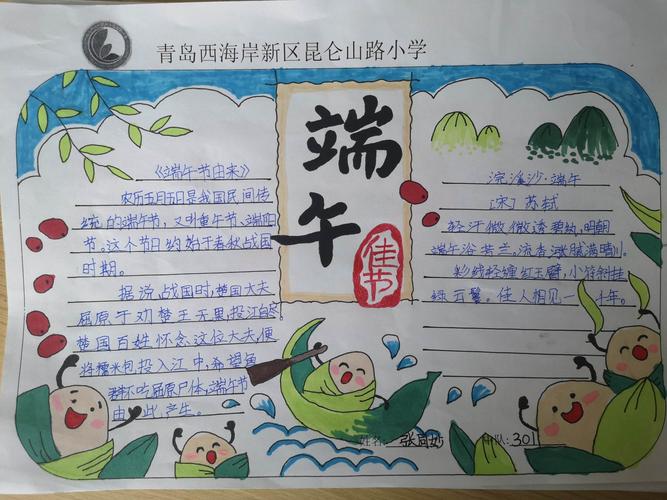 青岛西海岸新区昆仑山路小学
端
午
佳节
《端午节由来》
农历五月五日是我国民间传
统的端午节，又叫重午节、端阳
节。这个节日约始于春秋战国
时期。
据说，战国时，楚国大夫
屈原于劝楚王无果，投江自尽
楚国百姓怀念这位大夫，便
将糯米包投入江中，希望鱼
群不吃屈原尸体，端午节
由此产生。
浣溪沙·端午
[宋] 苏轼
轻汗微微透碧纨，明朝
端午浴芳兰。流香涨腻满晴川。
彩线轻缠红玉臂，小符斜挂
绿云鬟。佳人相见一千年。
姓名：张
中队：301